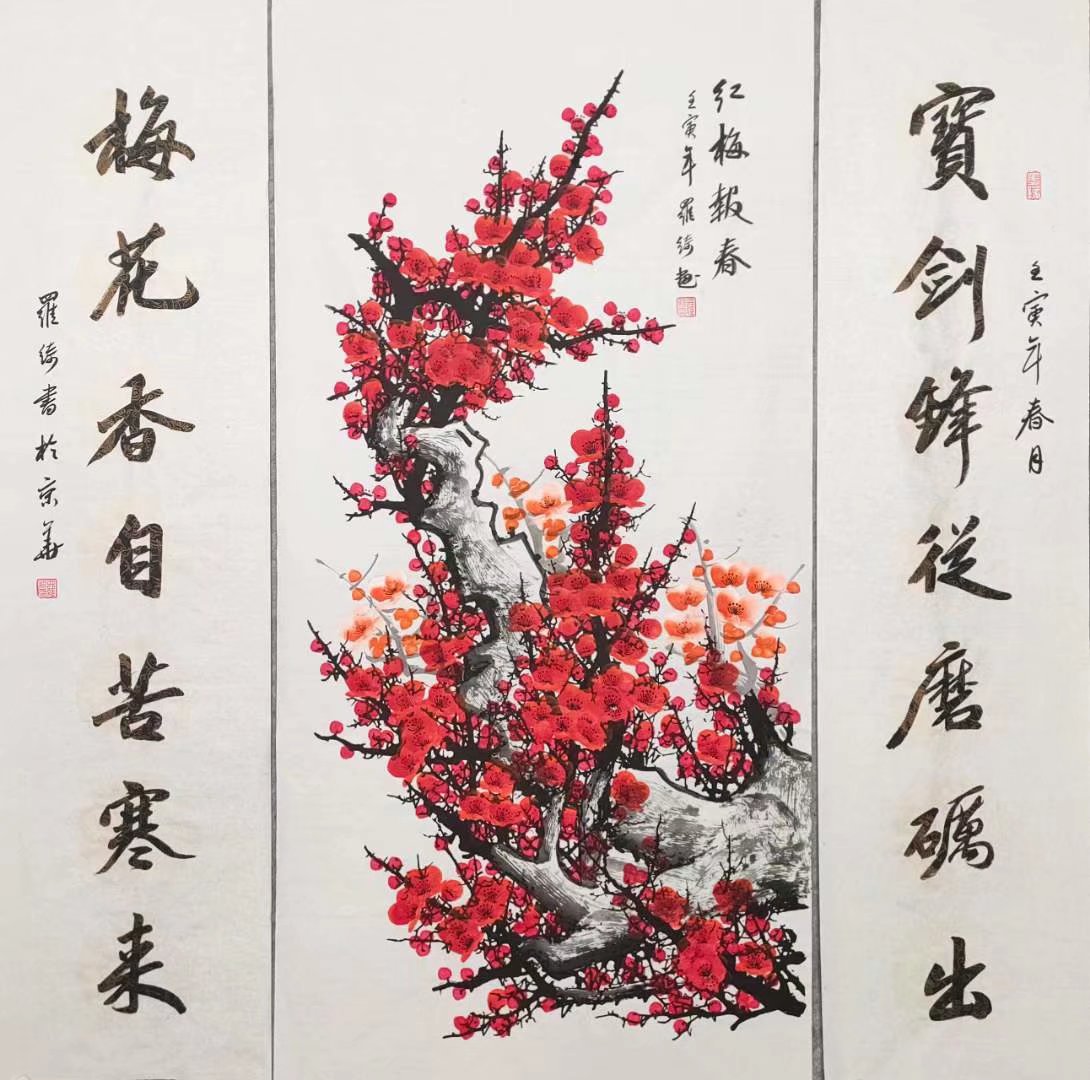 壬寅年春月
寶劍鋒從磨礪出
红梅報春
壬寅年羅绮画
梅花香自苦寒来
羅绮書於京華